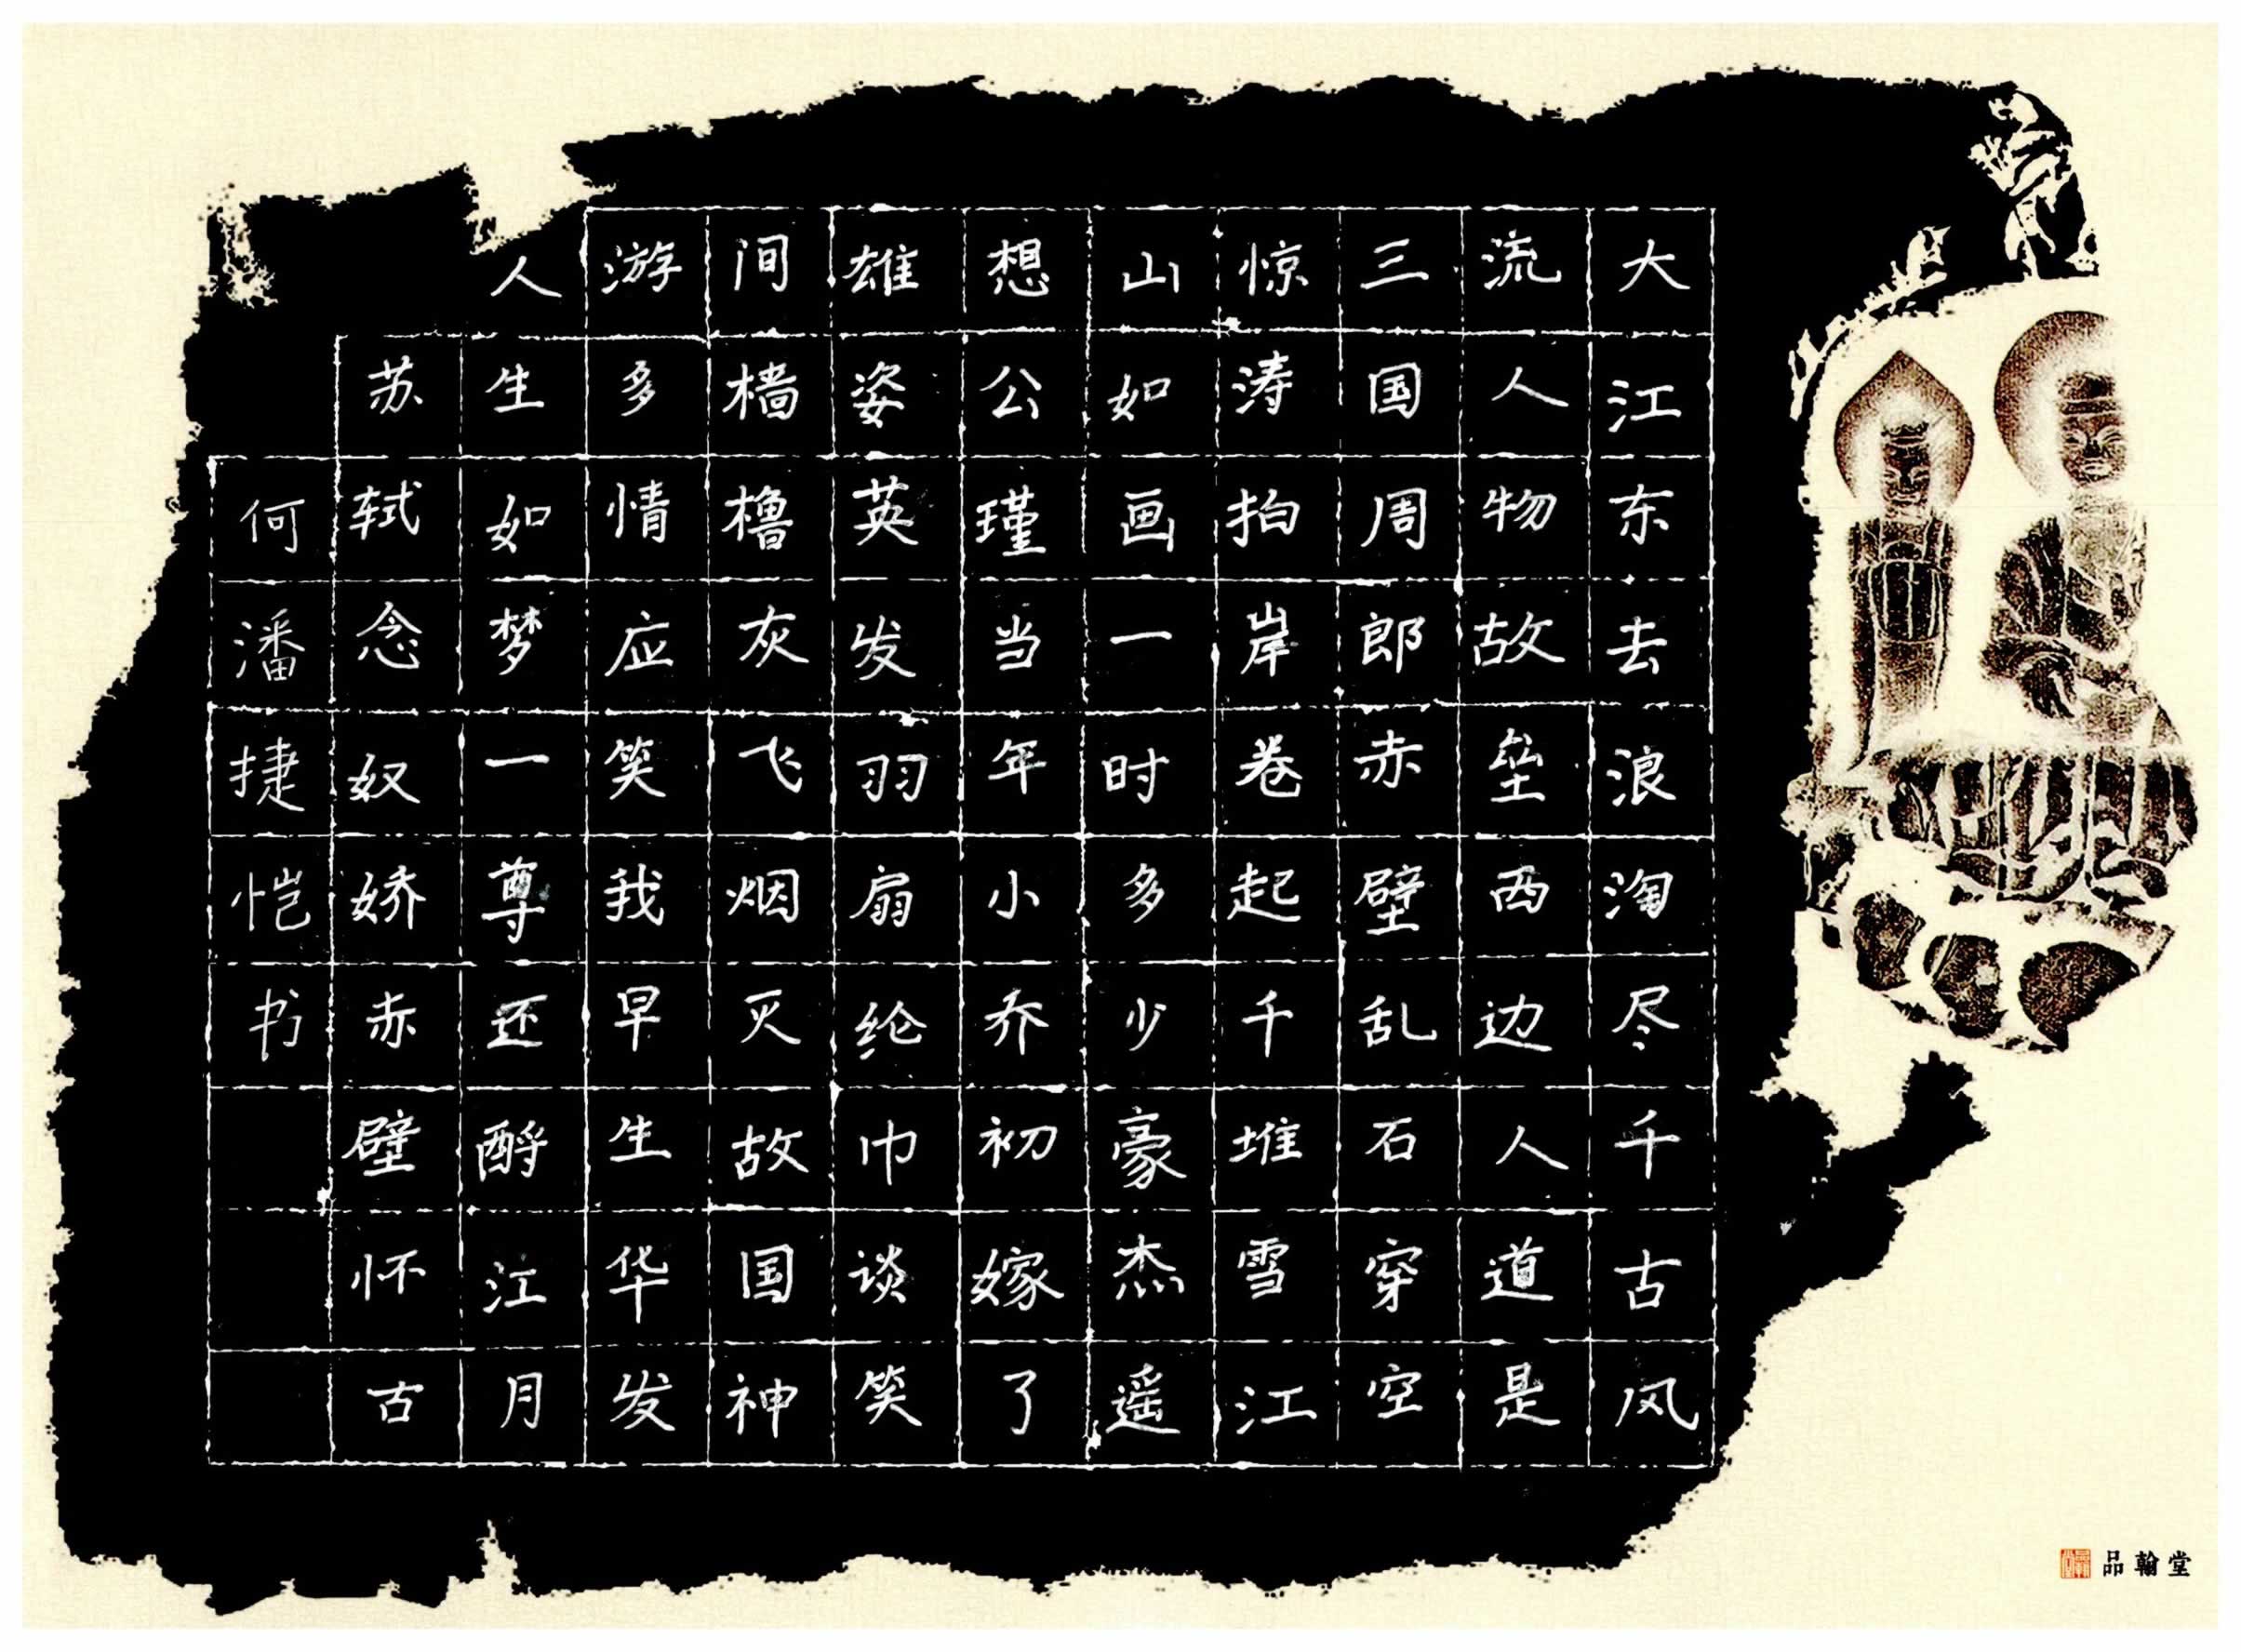 大江东去浪淘尽千古风
流人物故垒西边人道是
三国周郎赤壁乱石穿空
惊涛拍岸卷起千堆雪江
山如画一时多少豪杰遥
想公瑾当年小乔初嫁了
雄姿英发羽扇纶巾谈笑
间樯橹灰飞烟灭故国神
游多情应笑我早生华发
人生如梦一尊还酹江月
苏轼念奴娇赤壁怀古
何潘捷恺书
品翰堂